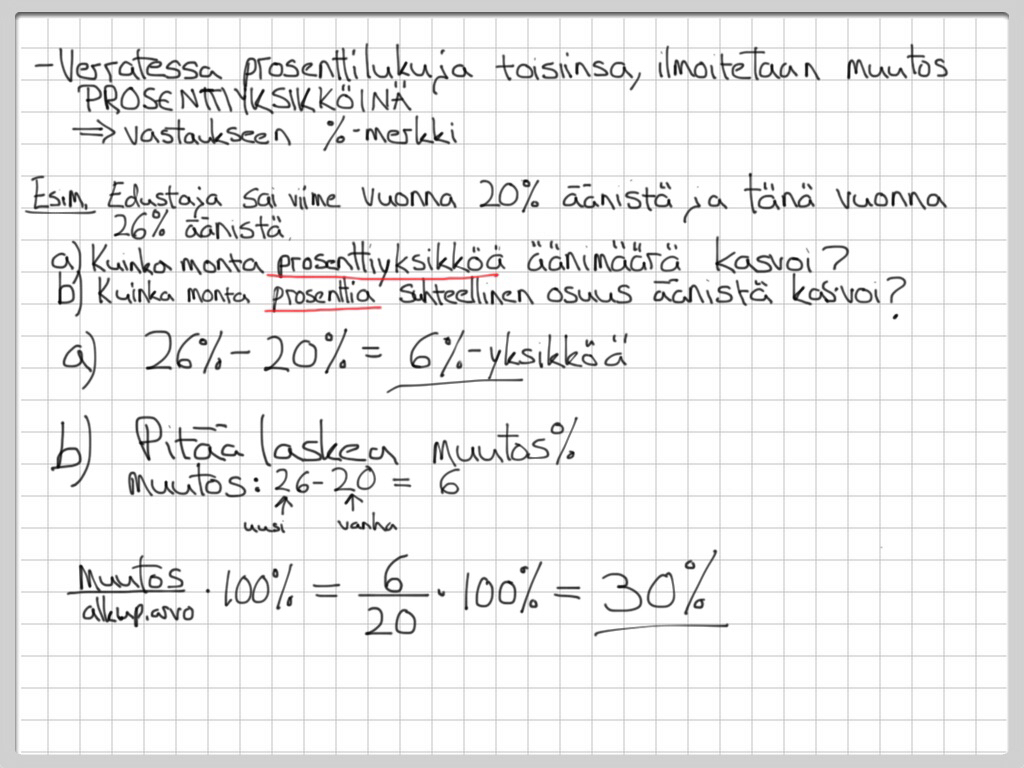 - Verratessa prosenttilukuja toisiinsa, ilmoitetaan muutos
PROSENTTIYKSIKKÖINÄ
⇒ vastaukseen %-merkki
Esim. Edustaja sai viime vuonna 20% äänistä ja tänä vuonna
26% äänistä.
a) Kuinka monta prosenttiyksikköä äänimäärä kasvoi?
b) Kuinka monta prosenttia suhteellinen osuus äänistä kasvoi?
a) 26% - 20% = 6%-yksikköä
b) Pitää laskea muutos%
muutos: 26 - 20 = 6
↑ ↑
uusi vanha
muutos/alkup.arvo · 100% = 6/20 · 100% = 30%